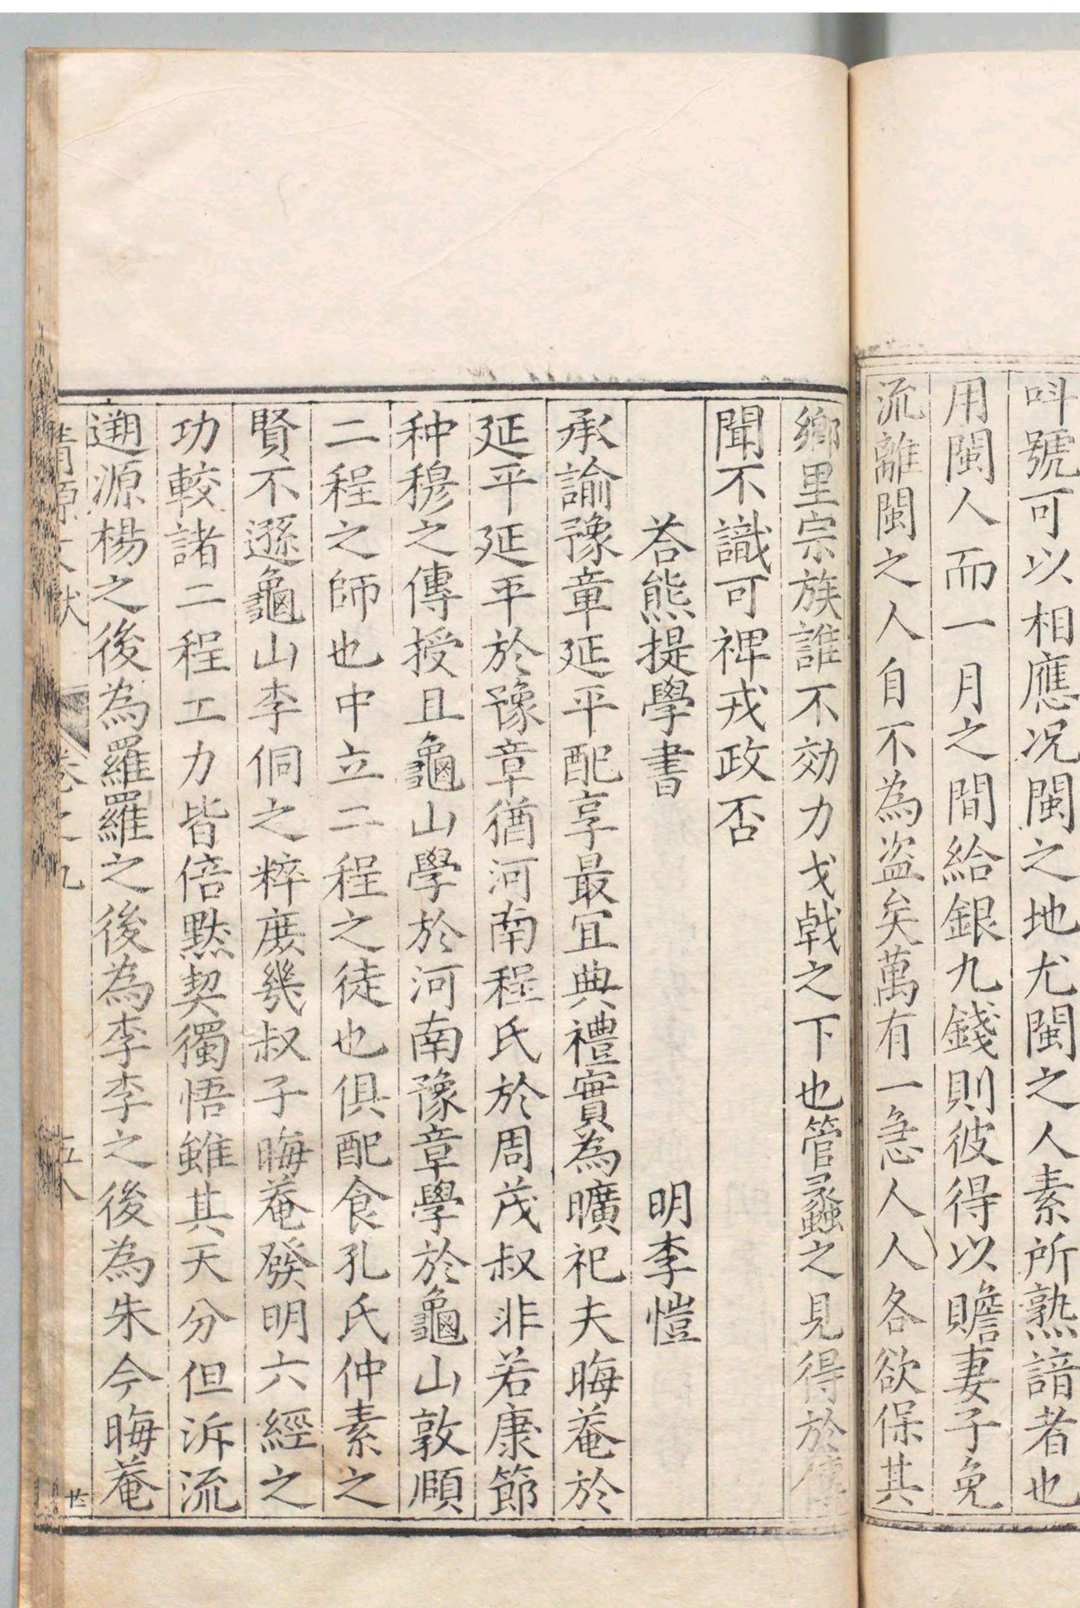 呌號可以相應况閩之地尤閩之人素所熟諳者也
用閩人而一月之間給銀九錢則彼得以贍妻子免
流離閩之人自不為盗矣萬有一急人人各欲保其
鄉里宗族誰不効力戈戟之下也管蠡之見得於傳
聞不識可裨戎政否
荅熊提學書 明李愷
承諭豫章延平配享最冝典禮實為曠祀夫晦菴於
延平延平於豫章猶河南程氏於周茂叔非若康節
种穆之傳授且龜山學於河南豫章學於龜山敦頥
二程之師也中立二程之徒也俱配食孔氏仲素之
賢不遜龜山李侗之粹庻幾叔子晦菴發明六經之
功較諸二程工力皆倍黙契獨悟雖其天分但泝流
遡源楊之後為羅羅之後為李李之後為朱今晦菴
清源文獻 卷之九 五八